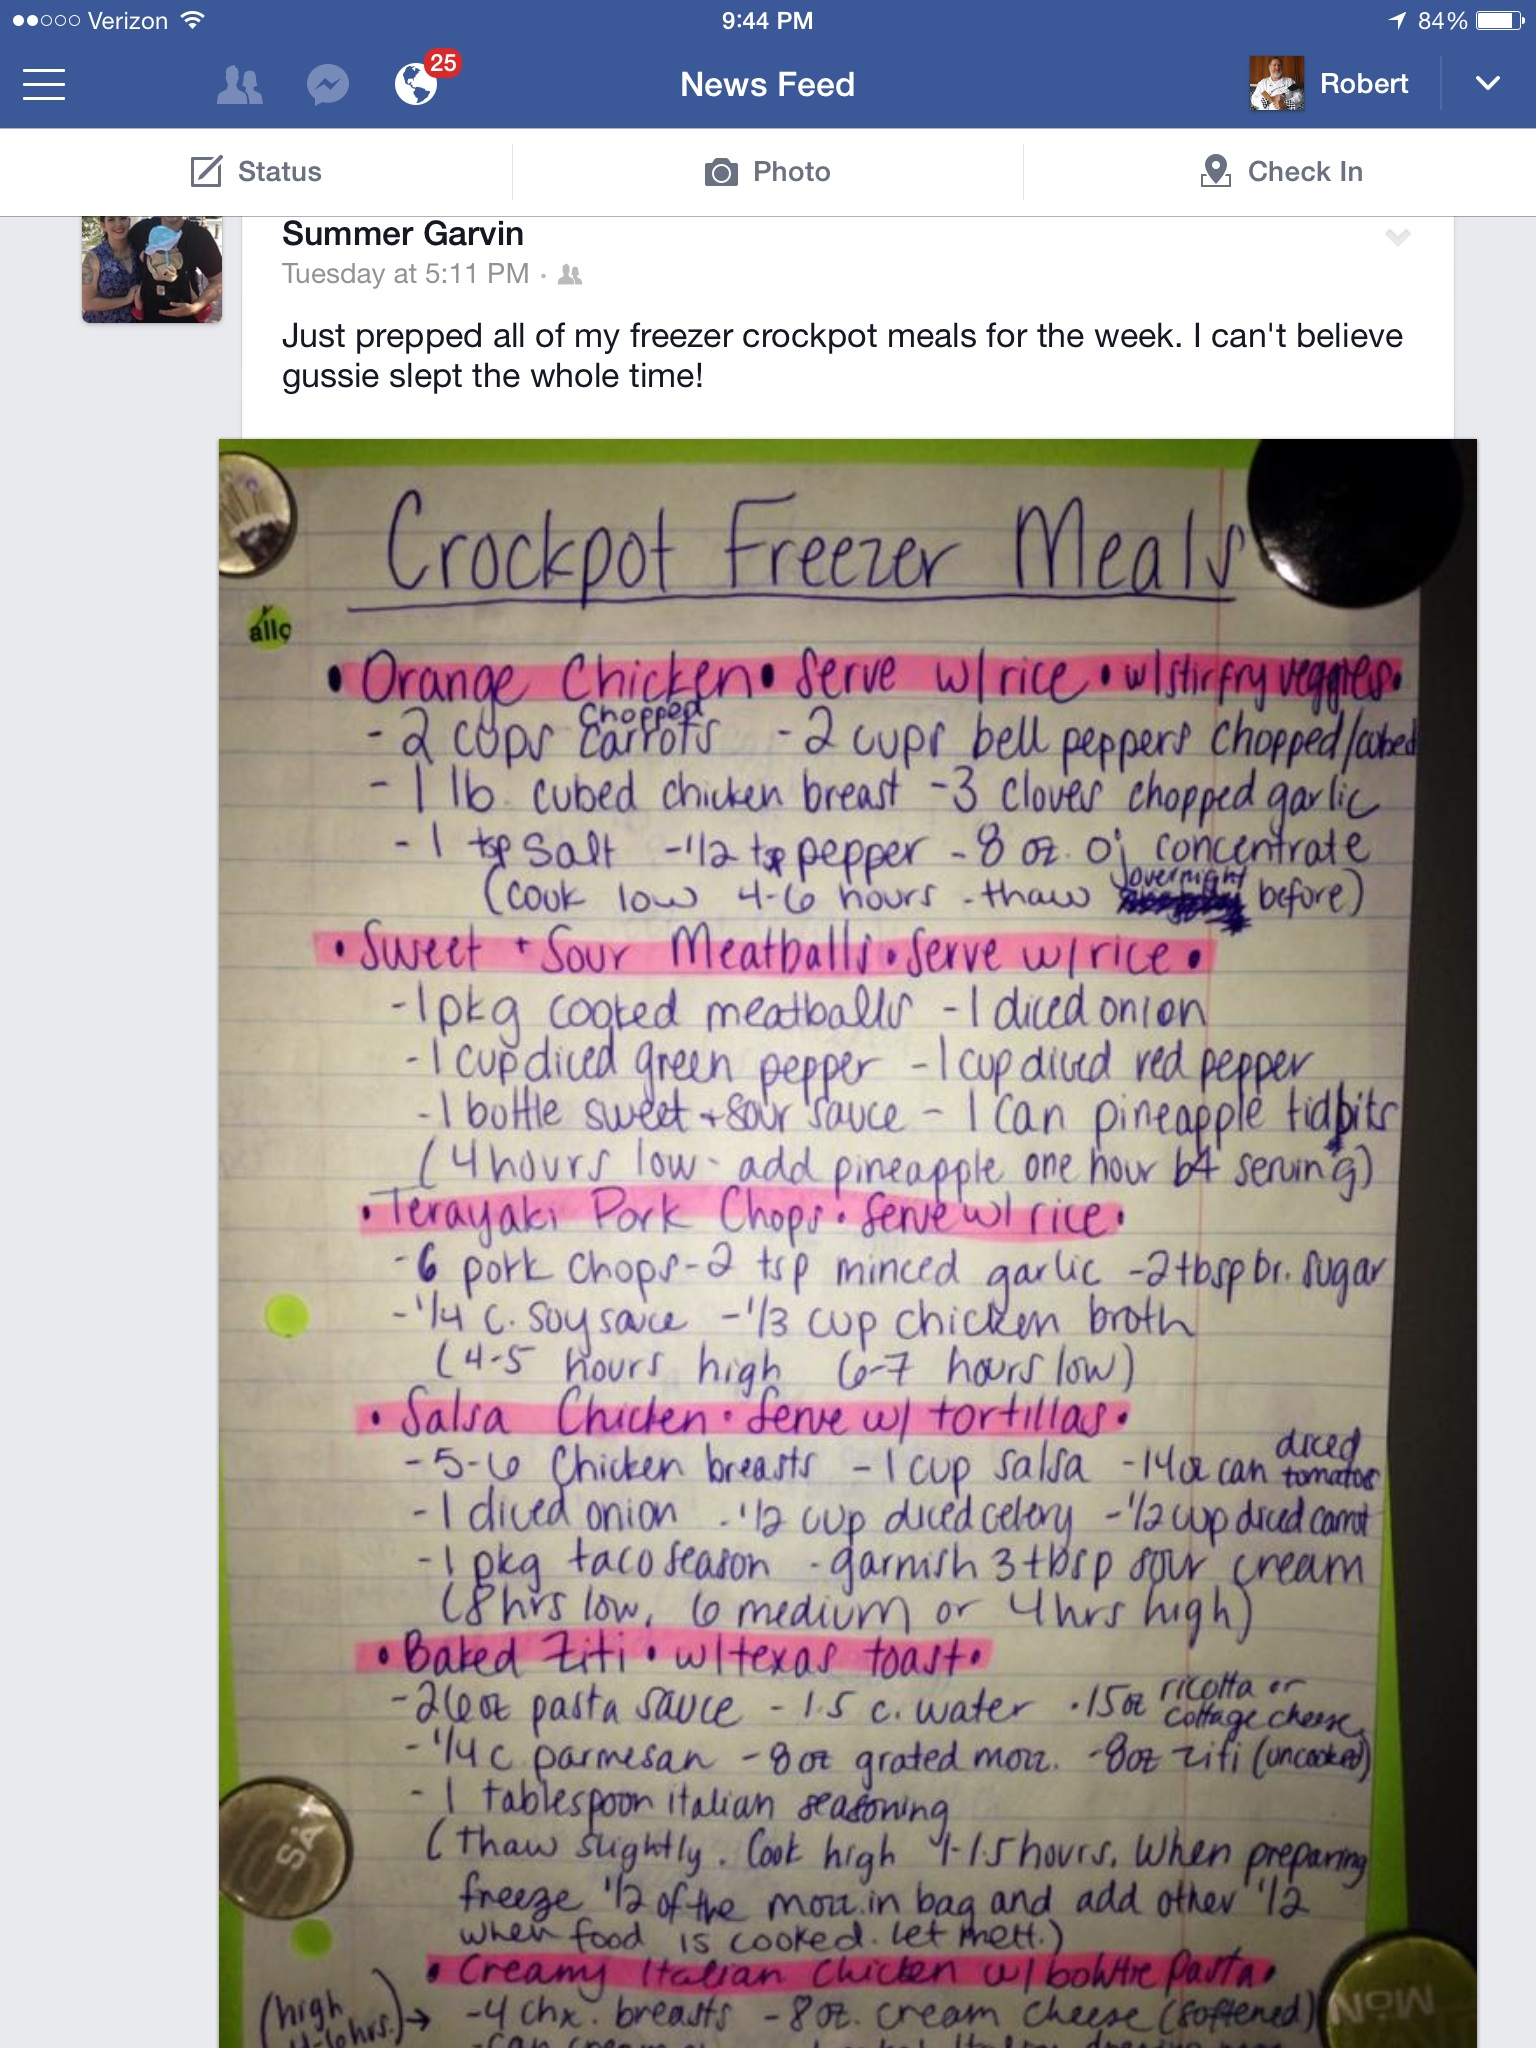 Verizon 9:44 PM 84%
25 News Feed Robert
Status Photo Check In
Summer Garvin
Tuesday at 5:11 PM ·
Just prepped all of my freezer crockpot meals for the week. I can't believe
gussie slept the whole time!
Crockpot Freezer Meals
allo
• Orange Chicken • Serve w/ rice • w/ stirfry veggies •
- 2 cups chopped carrots - 2 cups bell peppers chopped/cubed
- 1 lb. cubed chicken breast - 3 cloves chopped garlic
- 1 tsp salt - 1/2 tsp pepper - 8 oz. oj concentrate
(cook low 4-6 hours - thaw overnight before)
• Sweet + Sour Meatballs • Serve w/ rice •
- 1 pkg cooked meatballs - 1 diced onion
- 1 cup diced green pepper - 1 cup diced red pepper
- 1 bottle sweet + sour sauce - 1 can pineapple tidbits
(4 hours low - add pineapple one hour b4 serving)
• Terayaki Pork Chops • Serve w/ rice •
- 6 pork chops - 2 tsp minced garlic - 2 tbsp br. sugar
- 1/4 c. soy sauce - 1/3 cup chicken broth
(4-5 hours high 6-7 hours low)
• Salsa Chicken • Serve w/ tortillas •
- 5-6 Chicken breasts - 1 cup salsa - 14 oz can diced tomatoes
- 1 diced onion - 1/2 cup diced celery - 1/2 cup diced carrot
- 1 pkg taco season - garnish 3 tbsp sour cream
(8 hrs low, 6 medium or 4 hrs high)
• Baked Ziti • w/ texas toast •
- 26 oz pasta sauce - 1.5 c. water • 15 oz ricotta or cottage cheese
- 1/4 c parmesan - 8 oz grated mozz. - 8 oz ziti (uncooked)
- 1 tablespoon italian seasoning
(Thaw slightly. Cook high 1-1.5 hours. When preparing
freeze 1/2 of the mozz. in bag and add other 1/2
when food is cooked. Let melt.)
SA
• Creamy Italian Chicken w/ bowtie Pasta •
(high hrs.) → - 4 chx. breasts - 8 oz. cream cheese (softened)
MOM